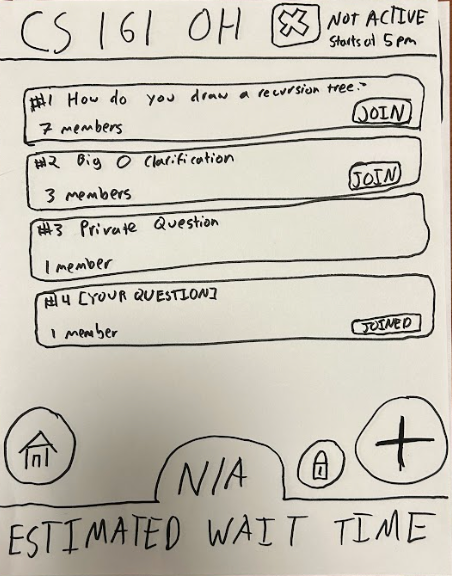 CS 161 OH
NOT ACTIVE
Starts at 5pm
#1 How do you draw a recursion tree?
7 members
JOIN
#2 Big O Clarification
3 members
JOIN
#3 Private Question
1 member
#4 [YOUR QUESTION]
1 member
JOINED
N/A
ESTIMATED WAIT TIME